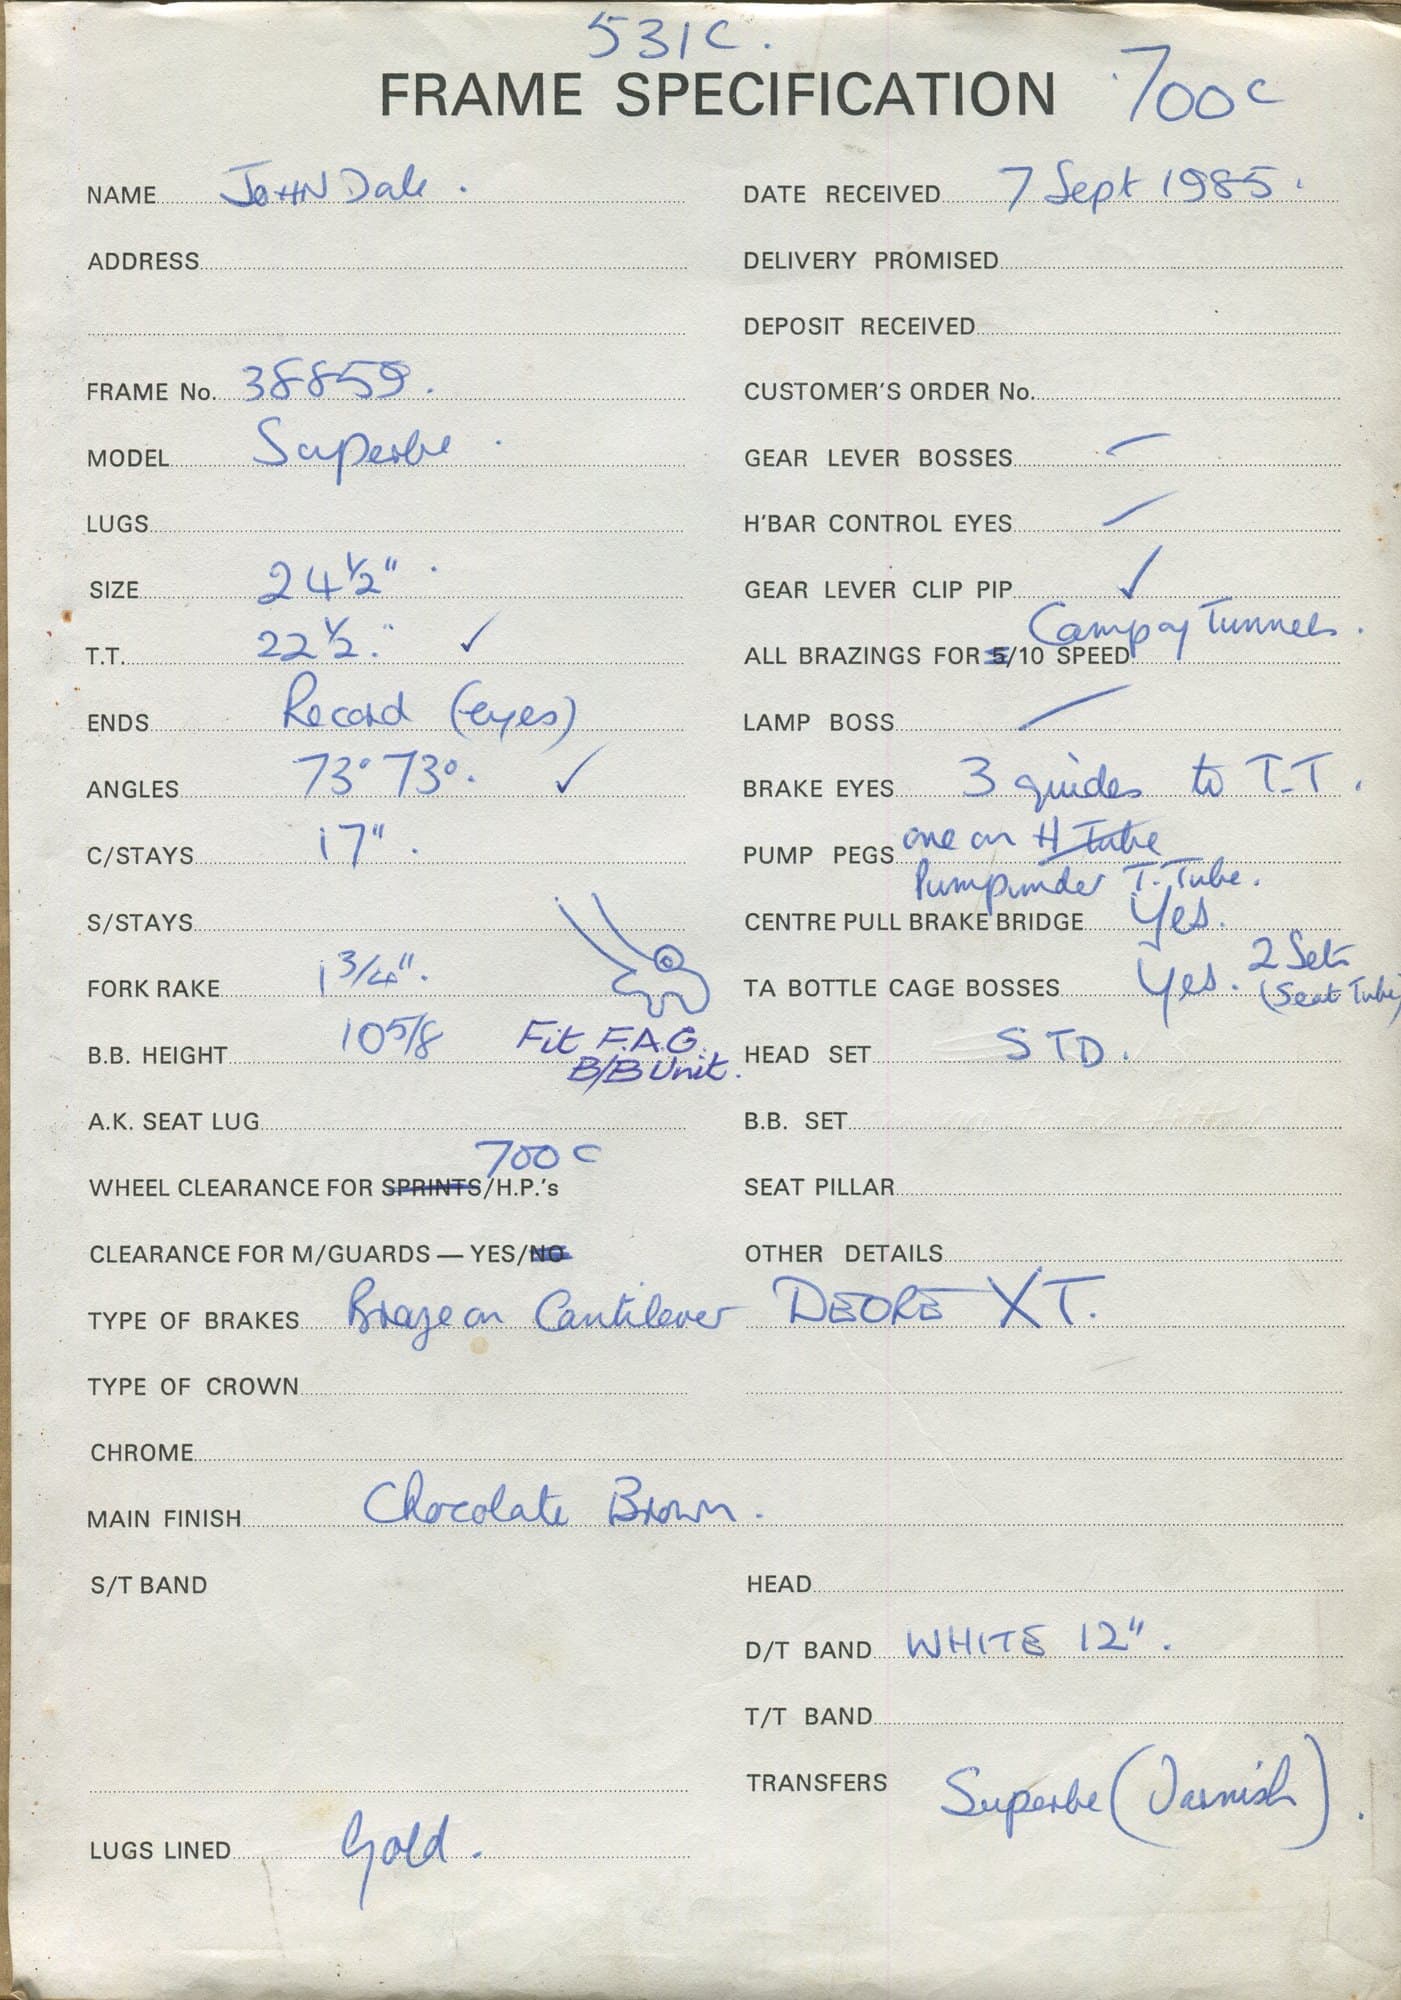 531C.
FRAME SPECIFICATION 700c
NAME JOHN Dale.
DATE RECEIVED 7 Sept 1985.
ADDRESS
DELIVERY PROMISED
DEPOSIT RECEIVED
FRAME No. 38859.
CUSTOMER'S ORDER No.
MODEL Superbe.
GEAR LEVER BOSSES –
LUGS
H'BAR CONTROL EYES –
SIZE 24½".
GEAR LEVER CLIP PIP ✓
T.T. 22½." ✓
Campag Tunnels.
ALL BRAZINGS FOR 5/10 SPEED
ENDS Record (eyes)
LAMP BOSS –
ANGLES 73° 73°. ✓
BRAKE EYES 3 guides to T-T.
C/STAYS 17".
PUMP PEGS one on H Tube
Pump under T. Tube.
S/STAYS
CENTRE PULL BRAKE BRIDGE Yes.
FORK RAKE 1 3/4".
TA BOTTLE CAGE BOSSES Yes. 2 Sets
(Seat Tube)
B.B. HEIGHT 10 5/8
Fit F.A.G.
B/B Unit.
HEAD SET STD.
A.K. SEAT LUG
B.B. SET
700c
WHEEL CLEARANCE FOR SPRINTS/H.P.'s
SEAT PILLAR
CLEARANCE FOR M/GUARDS — YES/NO
OTHER DETAILS
TYPE OF BRAKES Braze on Cantilever DEORE XT.
TYPE OF CROWN
CHROME
MAIN FINISH Chocolate Brown.
S/T BAND
HEAD
D/T BAND WHITE 12".
T/T BAND
TRANSFERS Superbe (Varnish).
LUGS LINED Gold.